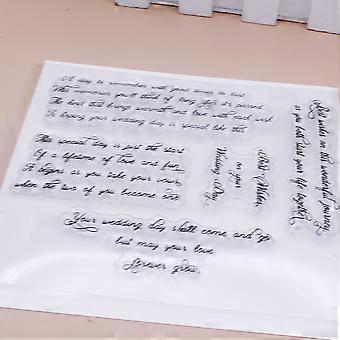 A day to remember with your dearest to last
What memories you'll stand of long after it's passed
The kind that brings warmth and love with each wish
To having your wedding day is special like this
This special day is just the start
Of a lifetime of love and fun,
It begins as you take your vows,
when the two of you become one.
Best Wishes
on your
Wedding Day
Best wishes on this wonderful journey
as you both start your life together
Your wedding day shall come and go
but may your love
forever grow.